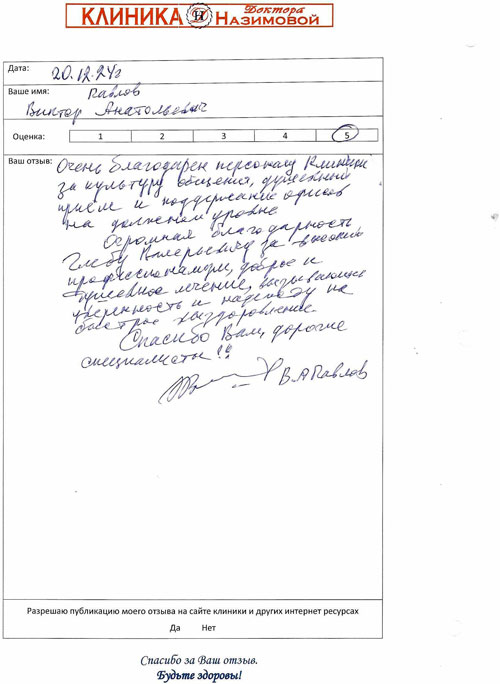 КЛИНИКА Доктора Назимовой
Дата: 20.12.24г
Ваше имя: Павлов
Виктор Анатольевич
Оценка: 1 2 3 4 5
Ваш отзыв: Очень благодарен персоналу Клиники
за культуру общения, душевный
приём и поддержание офисов
на должном уровне
Огромная благодарность
Глебу Валерьевичу за высокий
профессионализм, доброе и
душевное лечение, вызывающие
уверенность и надежду на
быстрое выздоровление.
Спасибо Вам, дорогие
специалисты!!
В.А Павлов
Разрешаю публикацию моего отзыва на сайте клиники и других интернет ресурсах
Да Нет
Спасибо за Ваш отзыв.
Будьте здоровы!